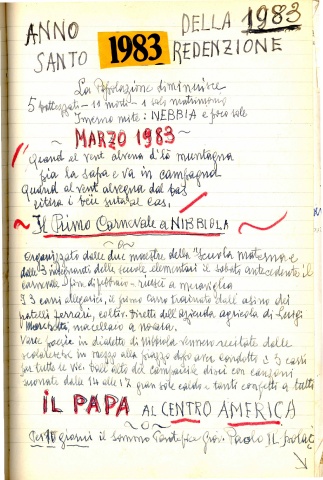 ANNO DELLA 1983
SANTO 1983 REDENZIONE
La Popolazione diminuisce
5 battezzati - 11 morti - 1 solo matrimonio
Inverno mite: NEBBIA e poco sole
~ MARZO 1983 ~
Quand al vent alvena d'lò muntagna
pia la sapa e va in campagna
Quand al vent alvegna dal bas
Il Primo Carnevale a NIBBIOLA
Organizzato dalle due maestre della Scuola materna e
dalle 3 insegnanti delle scuole elementari il sabato antecedente il
carnevale - fine di febbraio - riuscì a meraviglia
I 3 carri allegorici, il primo carro trainato dall'asino dei
fratelli Ferrari, coltiv. Diretti dell'azienda agricola di Luigi
macellaio a Novara.
Varie poesie in dialetto di Nibbiola vennero recitate dalle
scolaresche in mezzo alla piazza dopo aver condotto i 3 carri
per tutte le vie dischi con canzoni
suonate dalle 14 alle 17 gran sole caldo e tanti confetti a tutti
IL PAPA AL CENTRO AMERICA
Per 10 giorni il Sommo Pontefice Giov. Paolo II